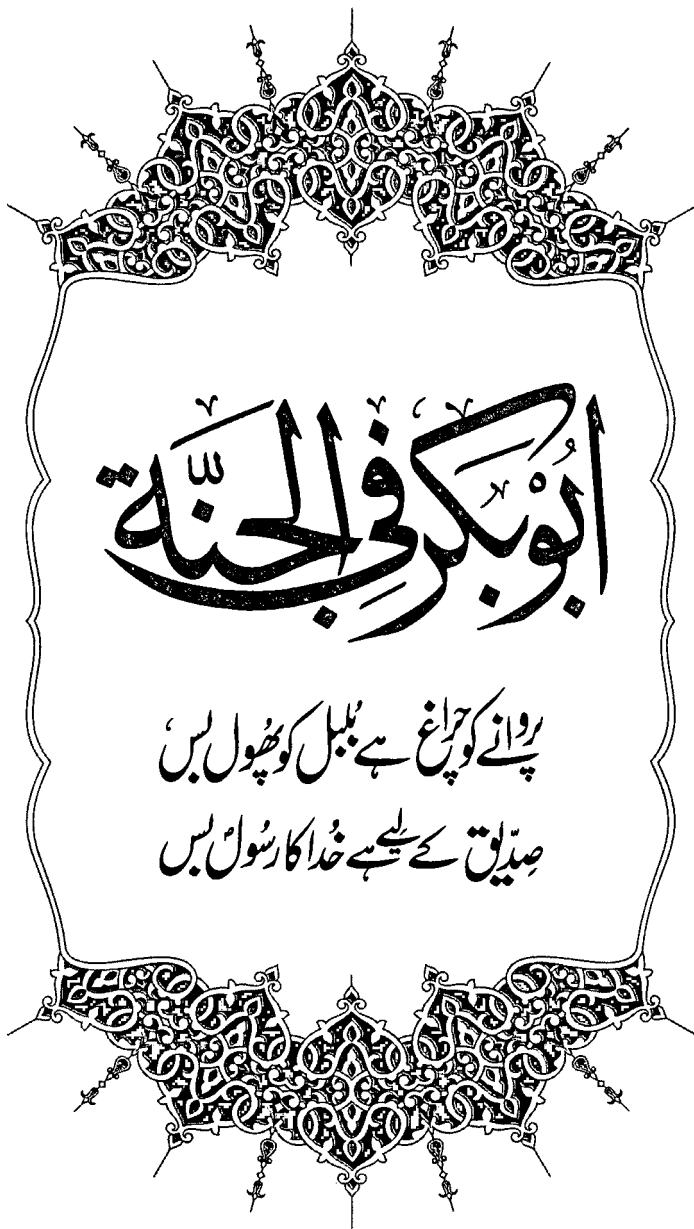 ابُوْبکر فِی الجنّة
پروانے کو چراغ ہے بُلبل کو پھُول بس
صِدّیق کے لیے ہے خُدا کا رسُولؐ بس